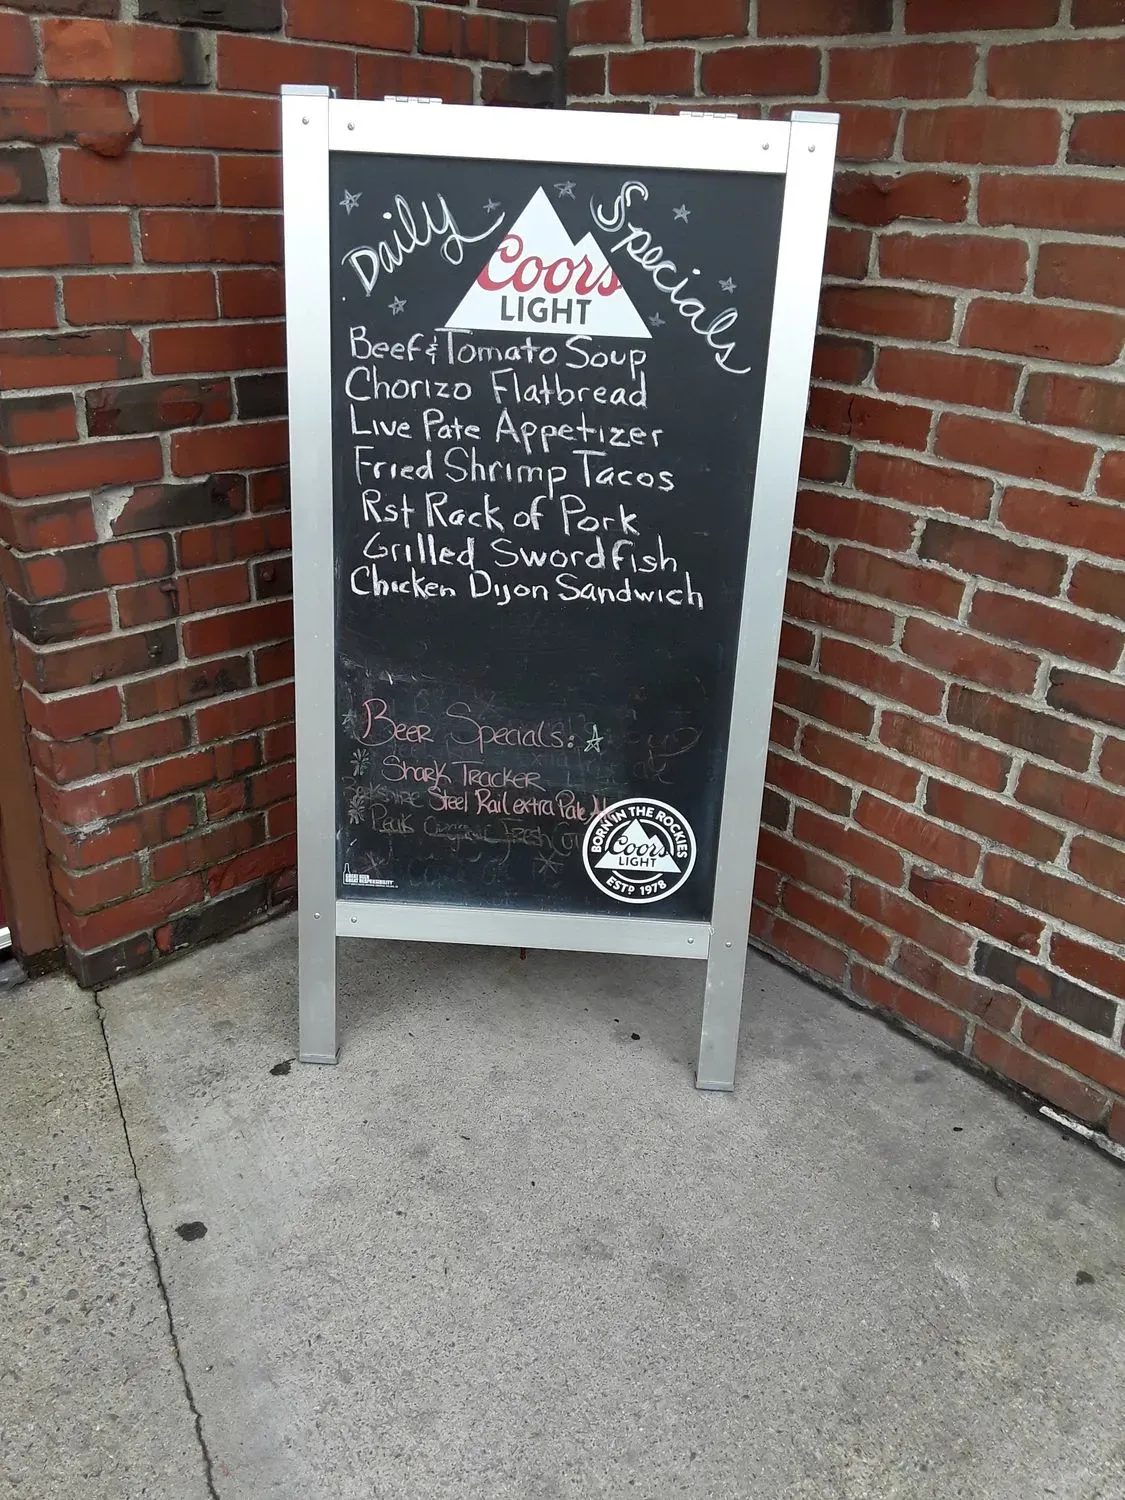 Daily Specials
Coors
LIGHT
Beef & Tomato Soup
Chorizo Flatbread
Live Pate Appetizer
Fried Shrimp Tacos
Rst Rack of Pork
Grilled Swordfish
Chicken Dijon Sandwich
Beer Specials:
Shark Tracker
Steel Rail extra Pale
Peak Organic Fresh
BORN IN THE ROCKIES
Coors
LIGHT
ESTD 1978
GREAT BEER
GREAT RESPONSIBILITY